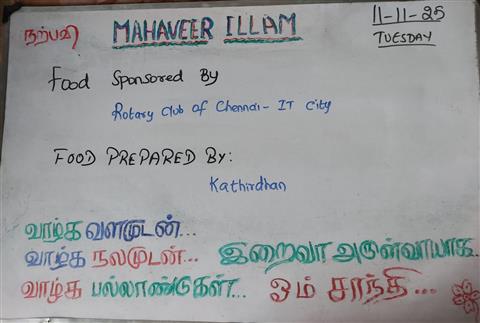 நற்பவி MAHAVEER ILLAM 11-11-25
TUESDAY
Food Sponsored By
Rotary Club Of Chennai - IT City
FOOD PREPARED BY:
Kathirdhan
வாழ்க வளமுடன்...
வாழ்க நலமுடன்... இறைவா அருள்வாயாக
வாழ்க பல்லாண்டுகள்... ஓம் சாந்தி...